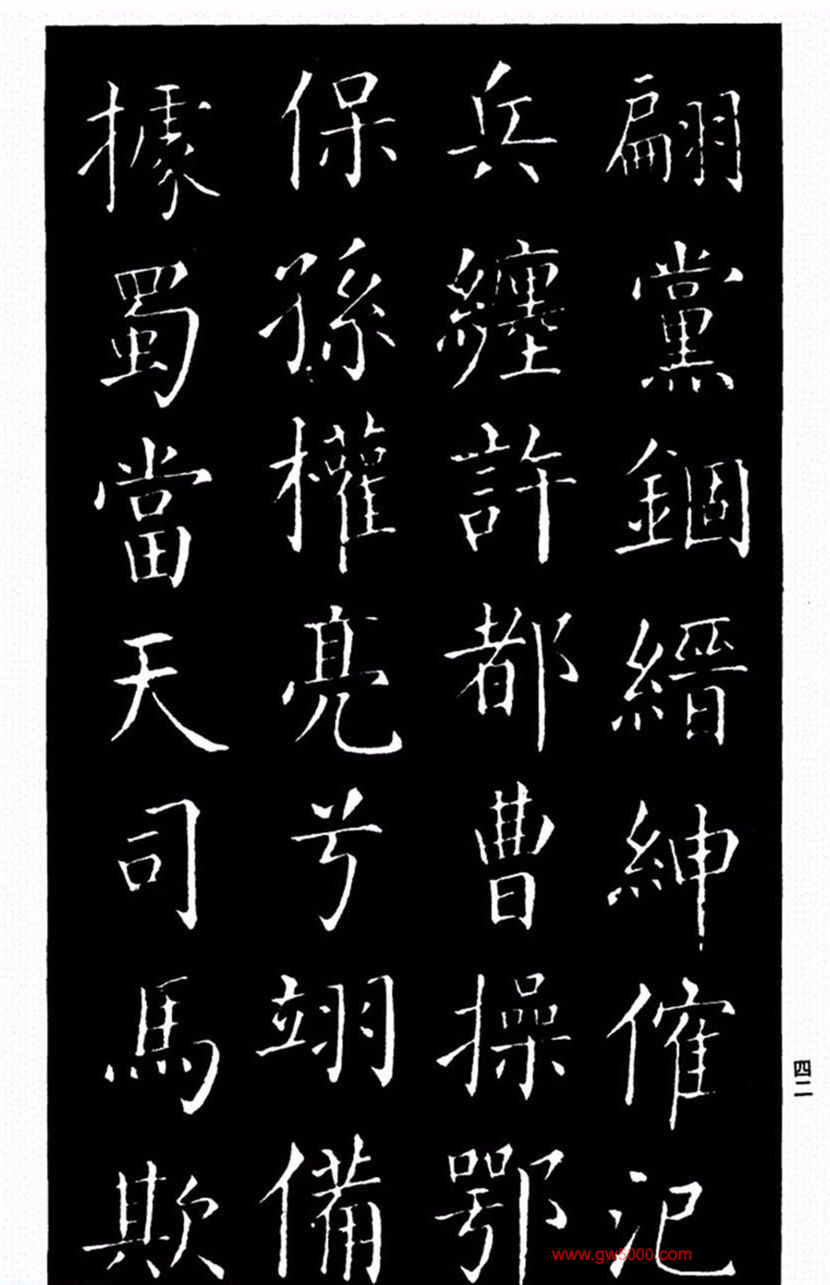 翩黨錮縉紳傕汜
兵纏許都曹操鄂
保孫權亮兮翊備
據蜀當天司馬欺
四二
www.gw5000.com